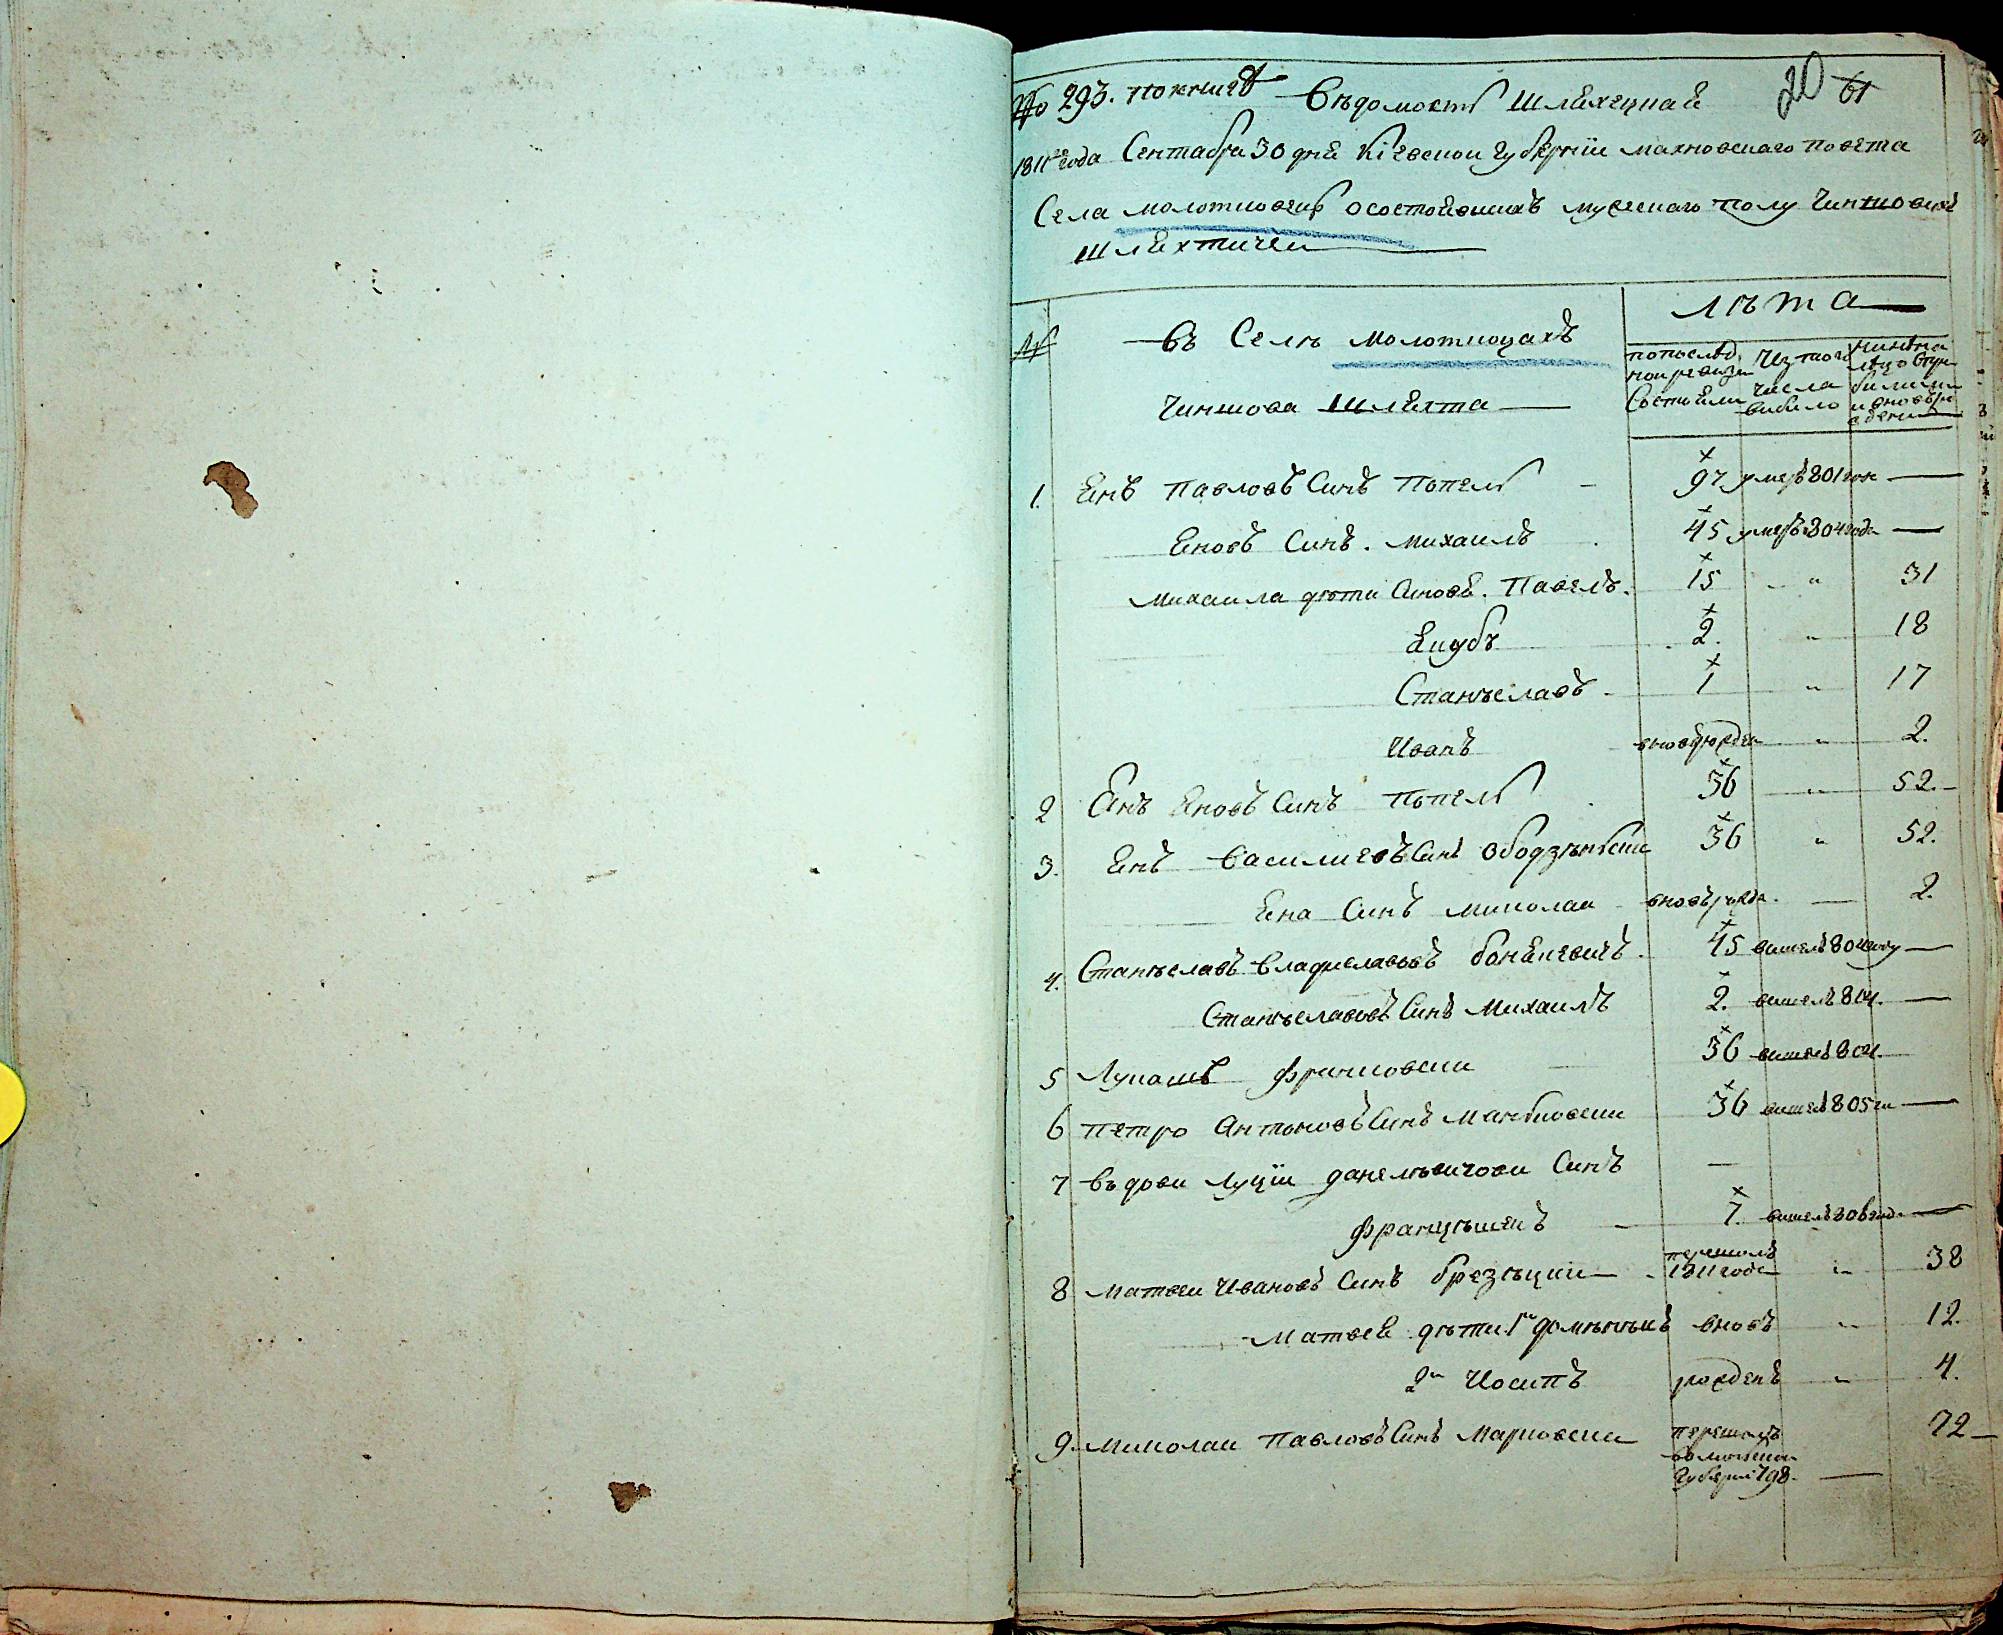 № 293. по книге Вѣдомость шляхецкая 20 61
1811го года Сентября 30 дня Кіевской губерніи махновскаго повета
Села молотковець о состоявшихъ мужескаго полу чиншовихъ
шляхтичей
№ Въ Селѣ молотковцахъ лѣта
чиншова шляхта
по последней ревизии состояли
из того числа вибило
1. Янъ Павловъ Синъ Попель 97 умеръ 801 года
Яновъ Синъ. михаилъ 45 умеръ 804 года
михаила дѣти Синовя. Павелъ. 15 " 31
Якубъ 2. " 18
Станѣславъ 1 " 17
Иванъ вновь рожден " 2.
2 Янъ Яновъ Синъ Попель 36 " 52.
3. Янъ Василиевъ Синъ Ободзѣнски 36 " 52.
Яна Синъ миколаи вновь рожден. 2.
4. Станѣславъ Владиславовъ бонякевичъ. 45 вишелъ 804 году
Станѣславовъ Синъ Михаилъ 2. вишелъ 804.
5 Лукашъ Френковски 36 вишелъ 804.
6 петро Антоновъ Синъ Маньковски 36 вишелъ 805 го
7 въдови Луціи данелѣвичови Синъ
францѣшекъ 7. вишелъ 806 год.
8 матвеи Ивановъ Синъ брезѣцки перешолъ 1811 года " 38
матвея дѣти 1й домѣнѣкъ вновь " 12.
2й Иосипъ рожденъ " 4.
9. миколаи Павловъ Синъ Марковски перешолъ 72
губерні 798.